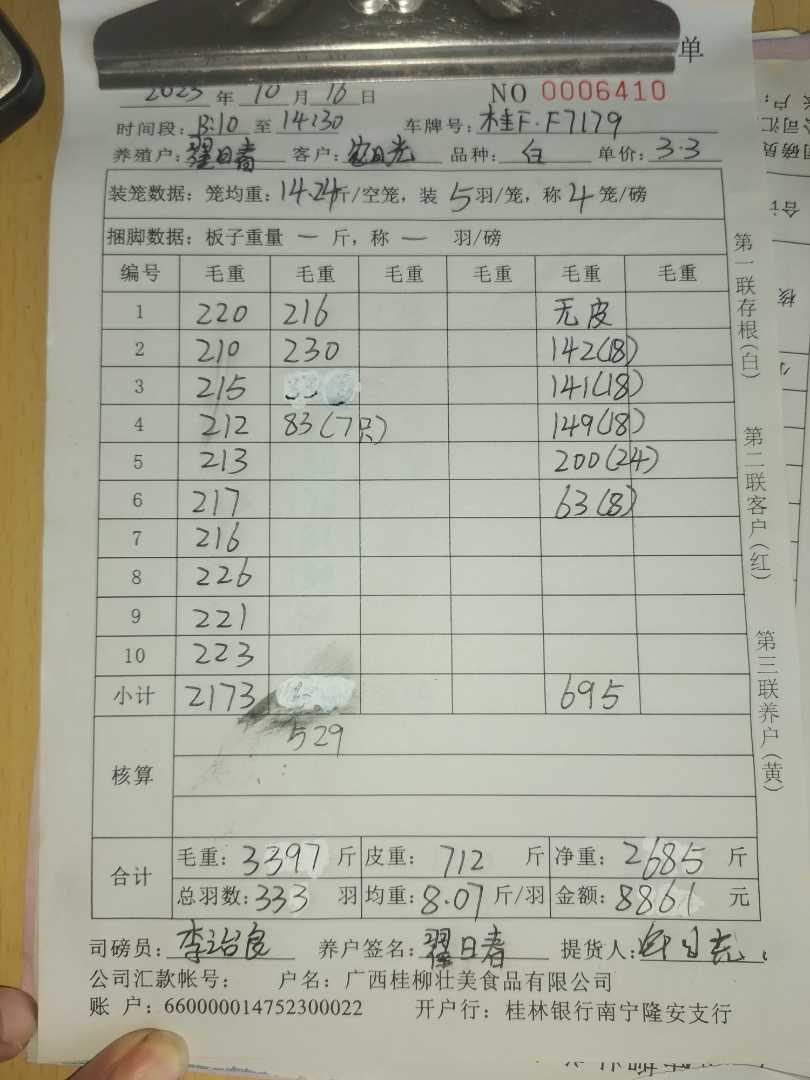 单
2023 年 10 月 16 日 NO 0006410
时间段: 13:10 至 14:30 车牌号: 桂F·F7179
养殖户: 翟日春 客户: 品种: 白 单价: 3.3
装笼数据: 笼均重: 14.24斤/空笼, 装 5 羽/笼, 称 4 笼/磅
捆脚数据: 板子重量 一 斤, 称 一 羽/磅
编号 毛重 毛重 毛重 毛重 毛重 毛重
1 220 216 无皮
2 210 230 142(18)
3 215 141(18)
4 212 83(7只) 149(18)
5 213 200(24)
6 217 63(8)
7 216
8 226
9 221
10 223
小计 2173 695
核算 529
合计
毛重: 3397 斤 皮重: 712 斤 净重: 2685 斤
总羽数: 333 羽 均重: 8.07 斤/羽 金额: 8861 元
司磅员: 李治良 养户签名: 翟日春 提货人:
公司汇款帐号: 户名: 广西桂柳壮美食品有限公司
账 户: 660000014752300022 开户行: 桂林银行南宁隆安支行
第一联存根(白)
第二联客户(红)
第三联养户(黄)